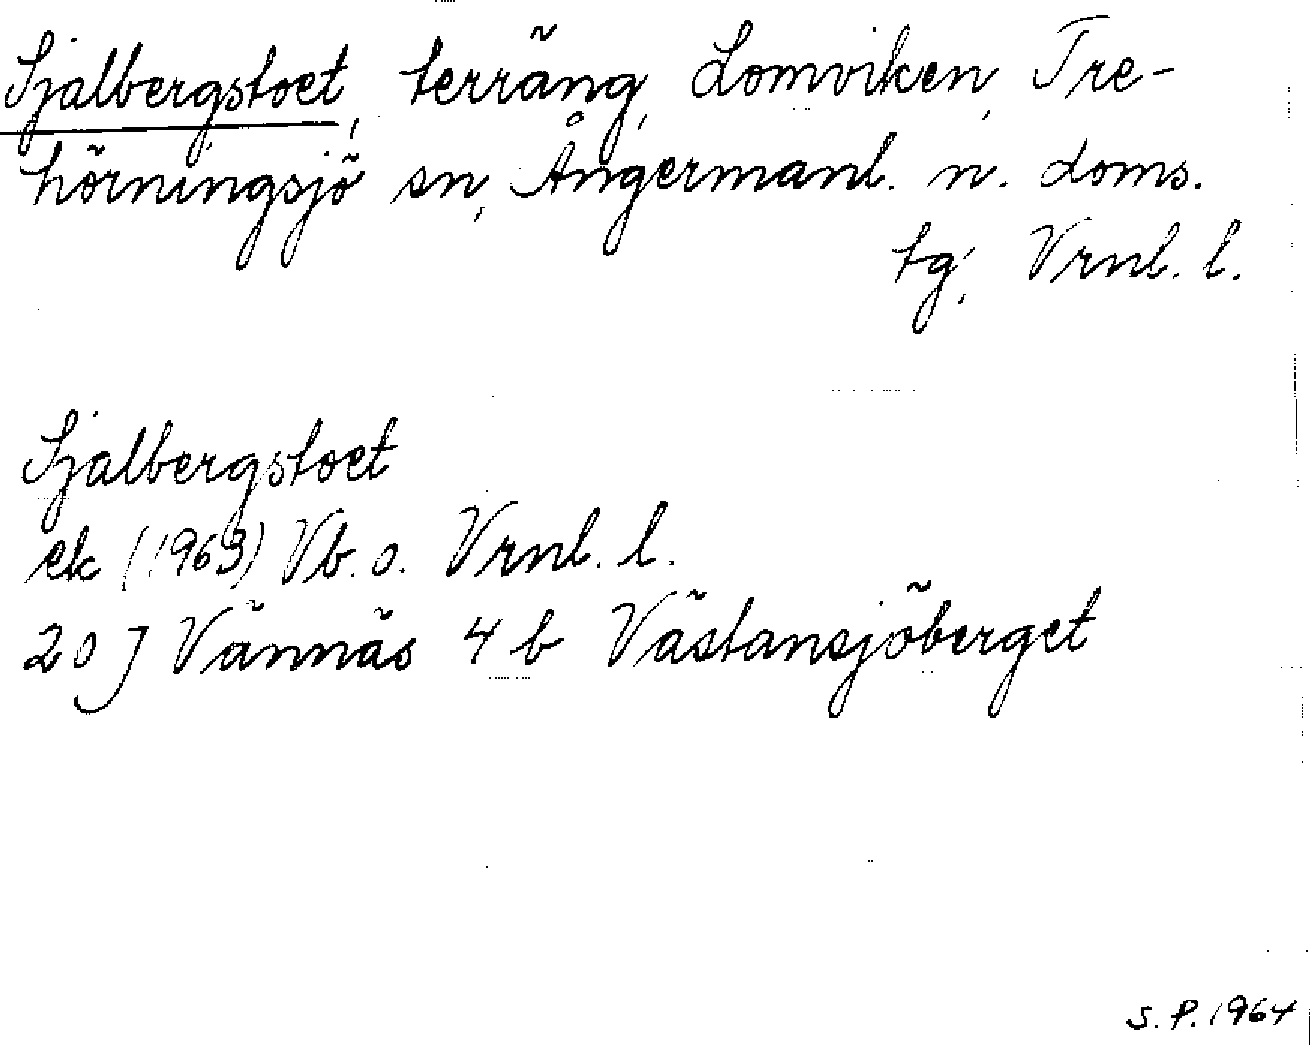 Sjalbergstoet, terräng, Lomviken, Tre-
hörningsjö sn, Ångermanl. n. doms.
tg, Vrnl. l.
Sjalbergstoet
ek (1963) Vb. o. Vrnl. l.
20 J Vännäs 4 b Västansjöberget
S.P. 1964